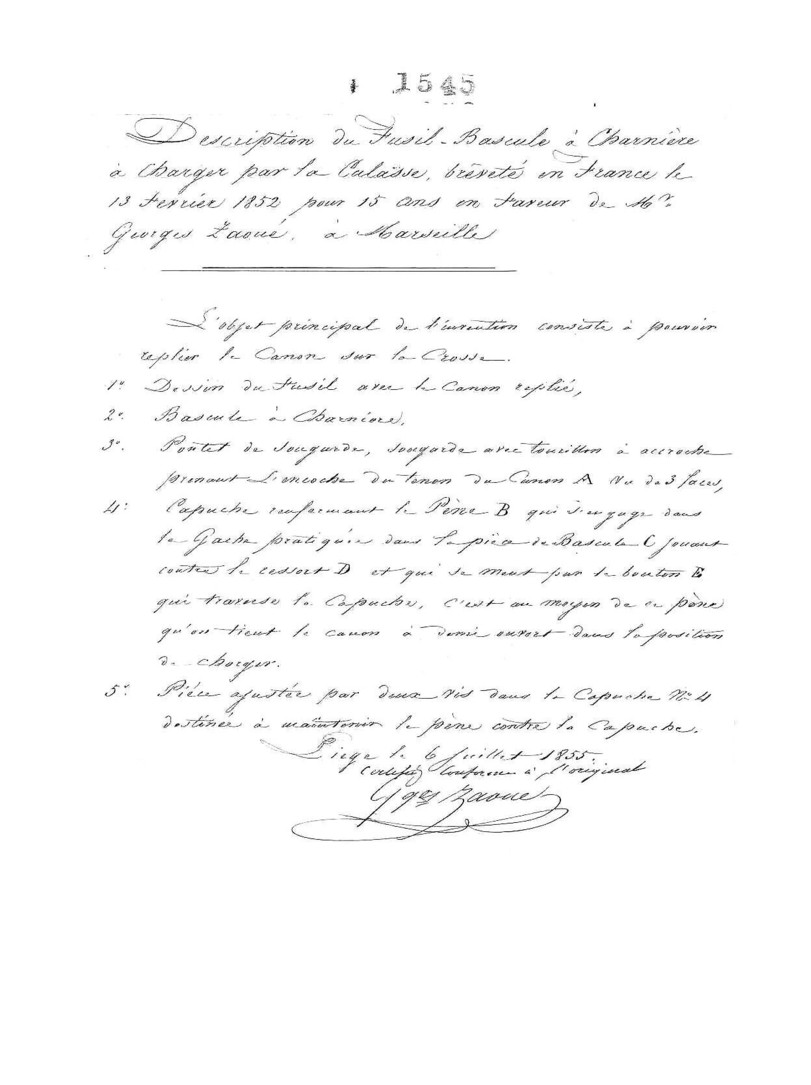 1545
Description du Fusil-Bascule à Charnière
à Charger par la Culasse, brêveté en France le
13 Fevrier 1852 pour 15 ans en Faveur de Mr.
Georges Zaoué, à Marseille
L'objet principal de l'invention consiste à pouvoir
replier le Canon sur la Crosse.
1º Dessin du Fusil avec le Canon replié,
2º. Bascule à Charniere,
3º. Pontet de sougarde, sougarde avec tourillon à accroche
prenant l'encoche du tenon du Canon A vu de 3 faces,
4º. Capuche renfermant le Pène B qui s'engage dans
la Gache pratiquée dans la pièce de Bascule C jouant
contre le ressort D et qui se meut par le bouton E
qui traverse la Capuche, c'est au moyen de ce pène
qu'on tient le canon à demi ouvert dans la position
de charger.
5º. Piéce ajustée par deux vis dans la Capuche Nº 4
destinée à maintenir le pène contre la Capuche.
Liege le 6 Juillet 1855.
Certifié Conforme à l'original
Gges Zaoué